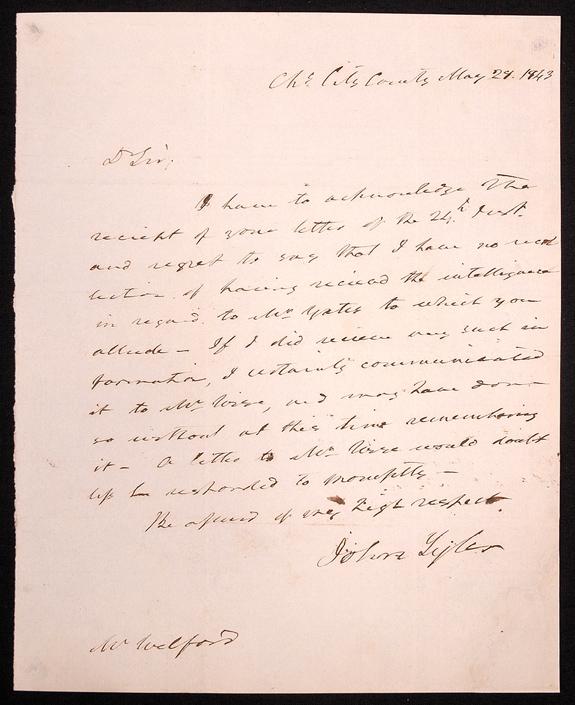 Chs City County May 29. 1843
Dr Sir,
I have to acknowledge the
reciept of your letter of the 24th Inst.
and regret to say that I have no recol
lection of having recieved the intelligence
in regard to Mr Yates to which you
allude – If I did recieve any such in
formation, I certainly communicated
it to Mr Wise, and may have done
so without at this time remembering
it – A letter to Mr Wise would doubt
less be responded to promptly –
Be assured of my high respect.
John Tyler
Mr Welford